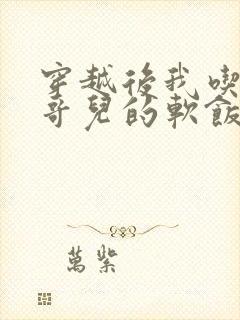 穿越後我喫
哥兒的軟飯
萬柴